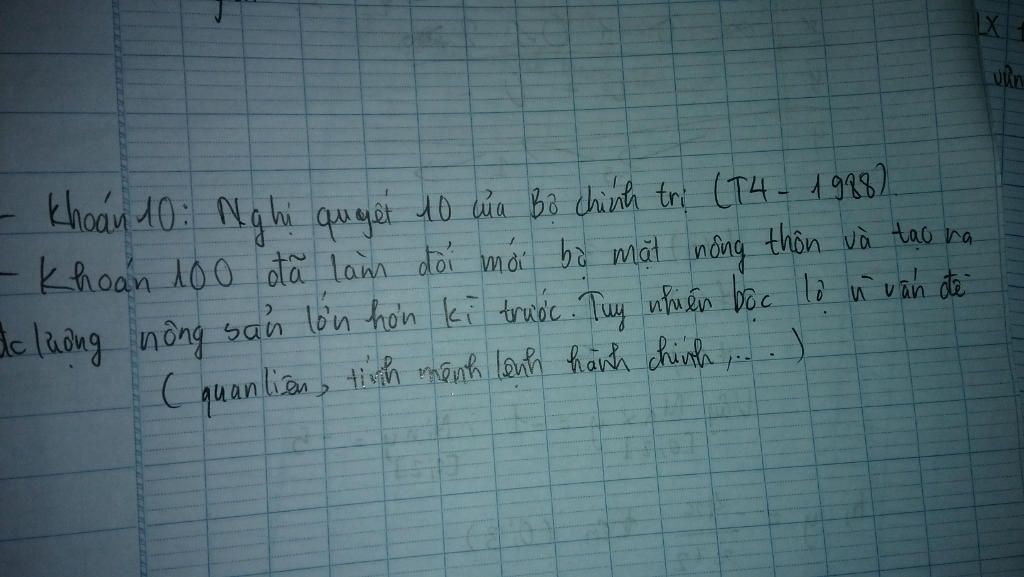 LX
vấn
- Khoán 10: Nghị quyết 10 của Bộ chính trị (T4 - 1988).
- Khoán 100 đã làm đổi mới bộ mặt nông thôn và tạo ra
lượng nông sản lớn hơn kì trước. Tuy nhiên bộc lộ n` vấn đề
(quan liên, tính mệnh lệnh hành chính,...)